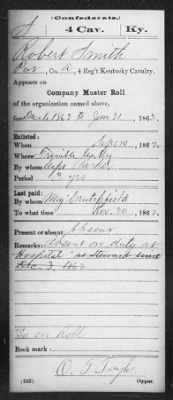 (Confederate.)
S 4 Cav. Ky.
Robert Smith
Co. A, 4 Reg't Kentucky Cavalry.
Appears on
Company Muster Roll
of the organization named above,
for Dec 1, 1862 to Jan 31, 1863.
Enlisted:
When Sept 10, 1862.
Where Trimble Co. Ky
By whom Capt.
Period 3 yrs
Last paid:
By whom Maj Crutchfield
To what time Nov. 30, 1862.
Present or absent Absent
Remarks: Absent on duty at
Hospital as steward since
on Roll
Book mark:
(642) Copyist.